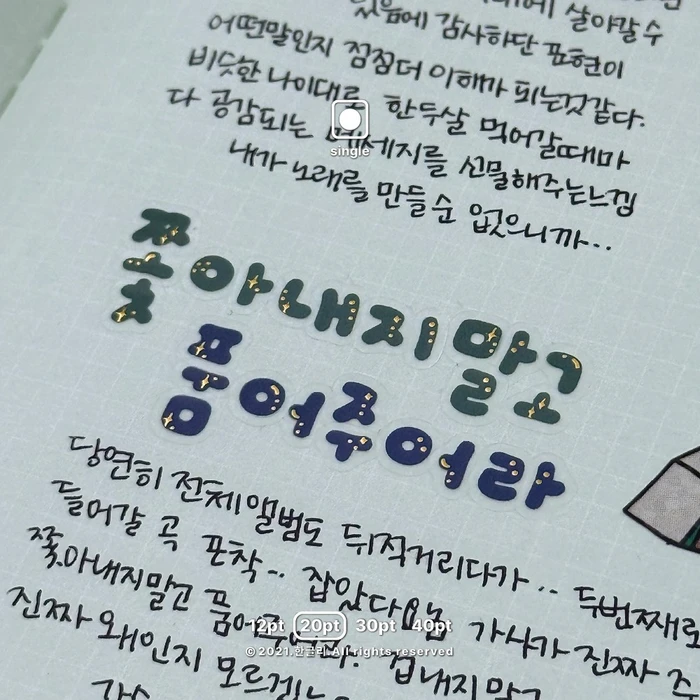 있음에 감사하단 표현이
어떤말인지 점점더 이해가 되는것같다.
비슷한 나이대로 한두살 먹어갈때마
다 공감되는 메세지를 선물해주는느낌
내가 노래를 만들순 없으니까..
single
쫓아내지말고
품어주어라
당연히 전체앨범도 뒤적거리다가.. 두번째로
들어갈 곡 포착~ 잡았다요놈 가사가 진짜
쫓아내지말고 품어주어라. 겁내지말고
진짜 왜인지 모르겠는
12pt 20pt 30pt 40pt
© 2021.한글리. All rights reserved